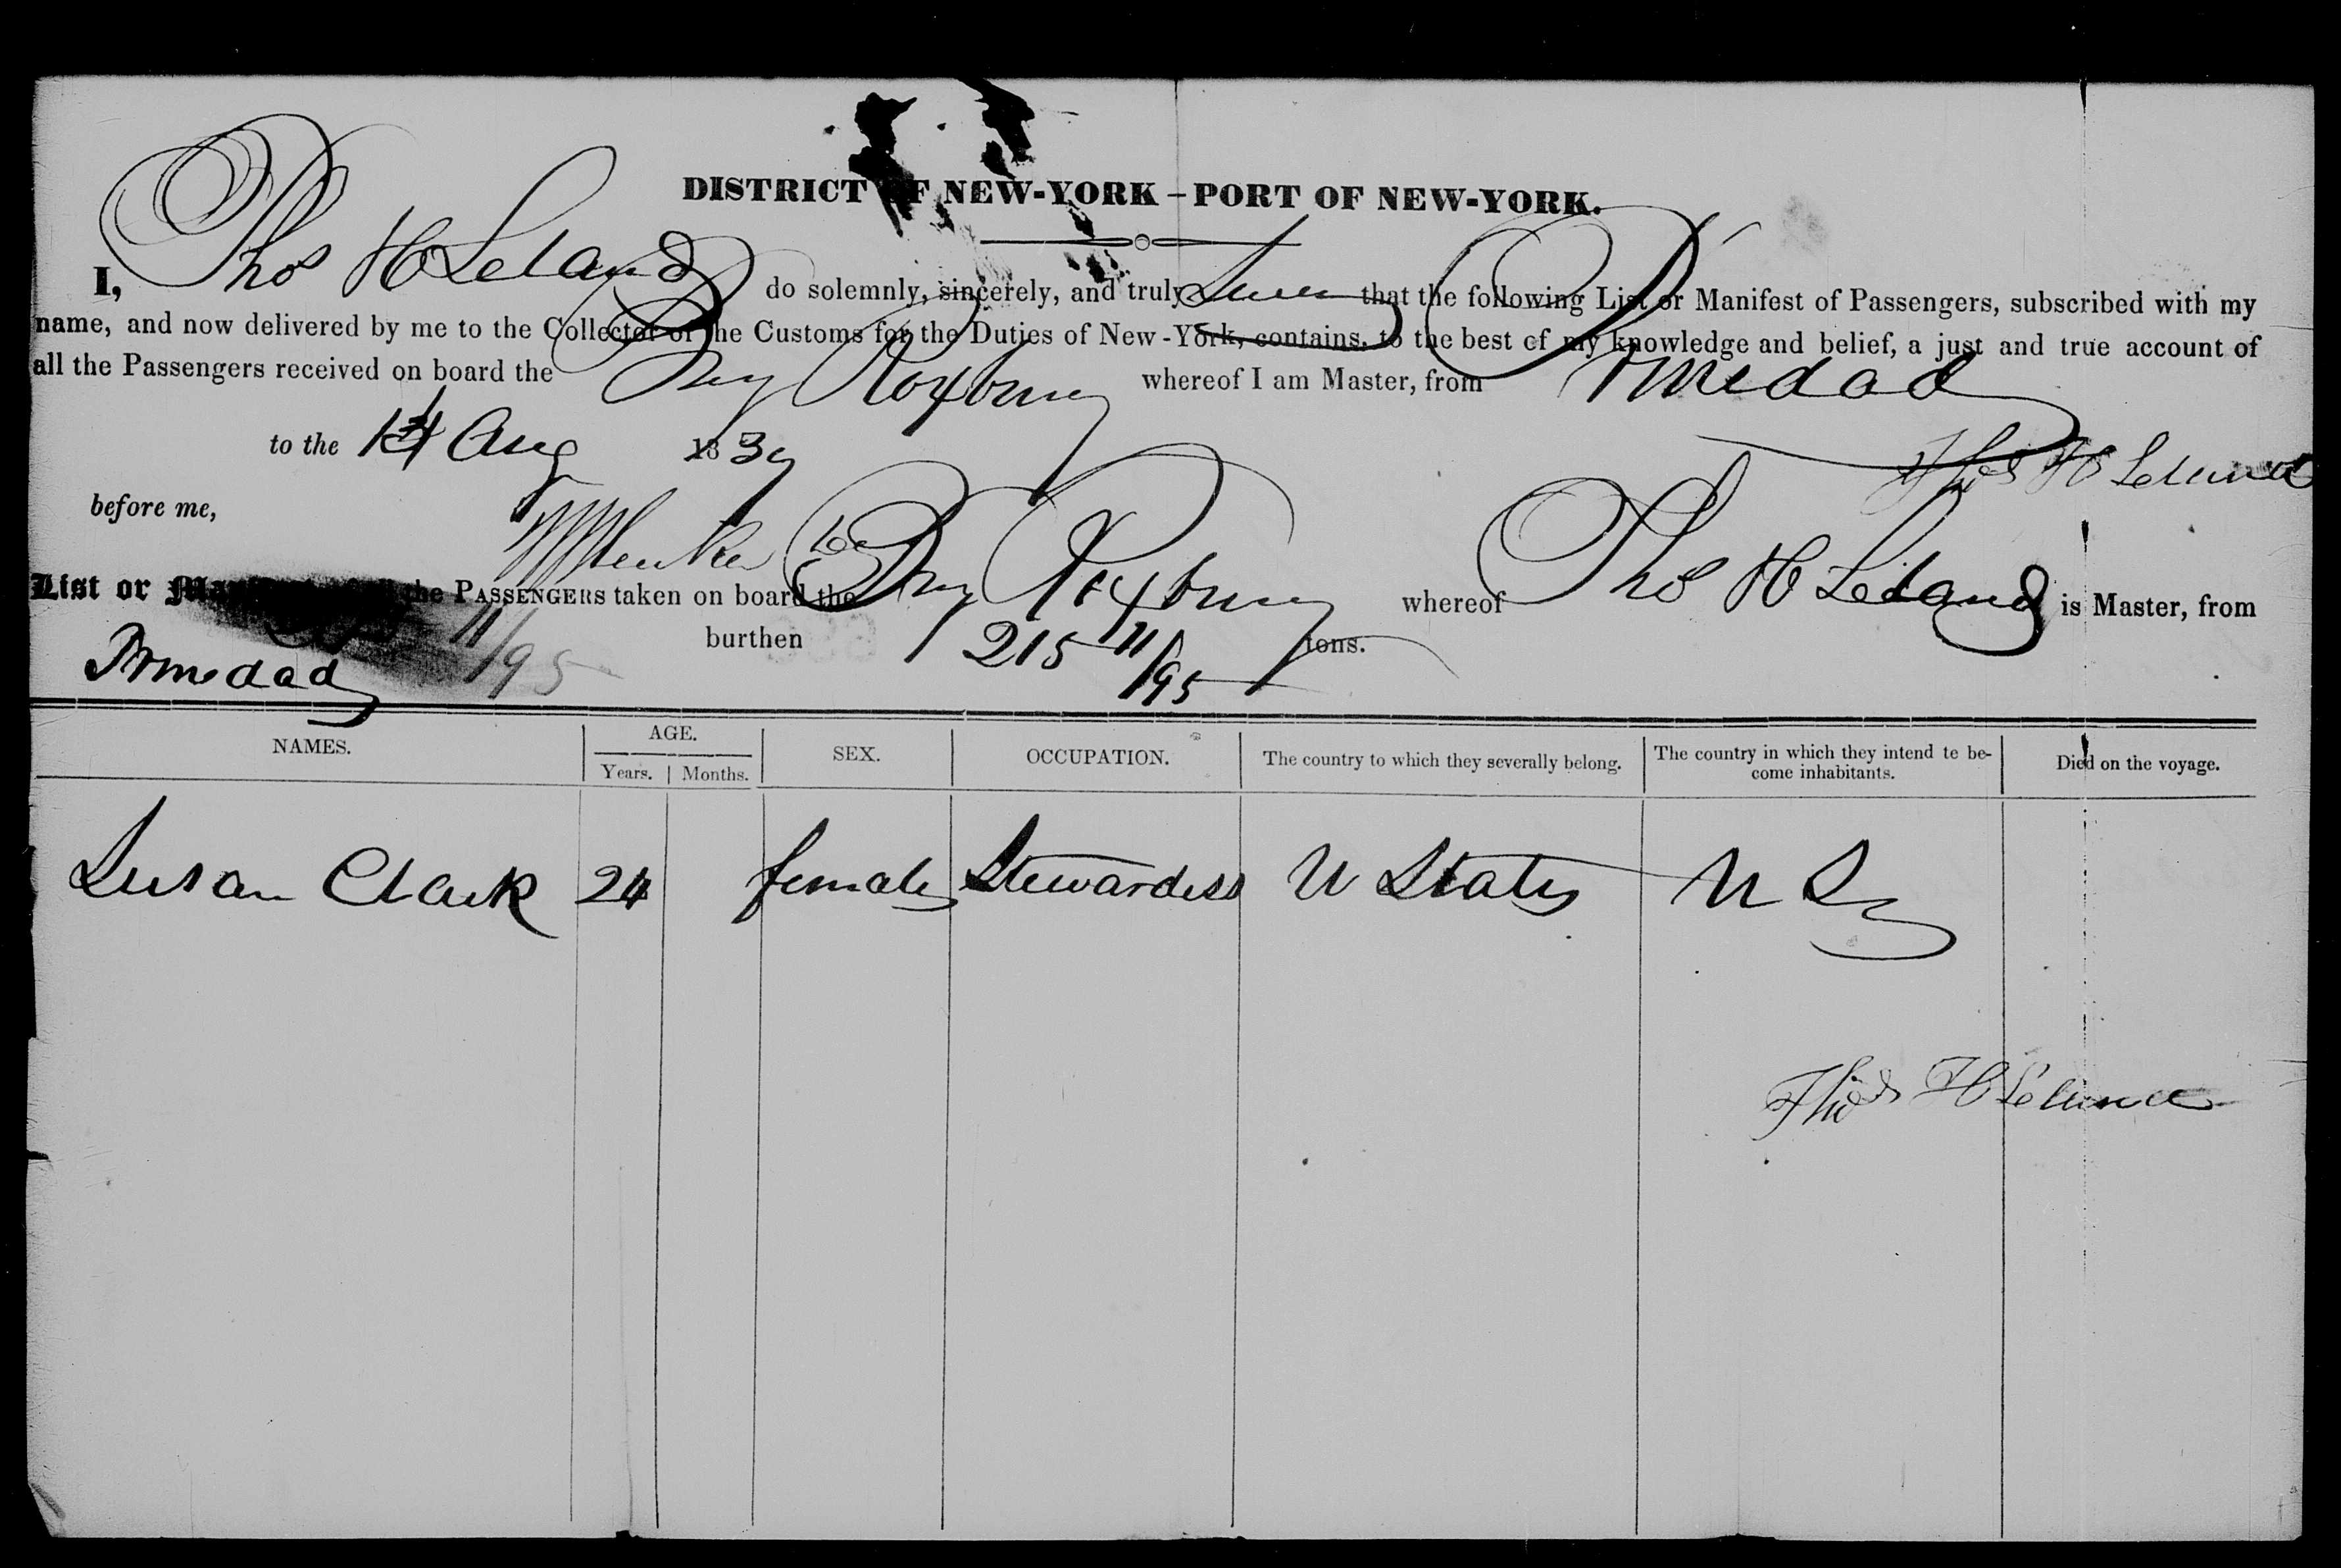 DISTRICT OF NEW-YORK – PORT OF NEW-YORK.
I, Thos H Leland do solemnly, sincerely, and truly Swear that the following List or Manifest of Passengers, subscribed with my
name, and now delivered by me to the Collector of the Customs for the Duties of New-York, contains, to the best of my knowledge and belief, a just and true account of
all the Passengers received on board the Brig Roxbury whereof I am Master, from Trinedad
to the 14 Aug 1839
Thos H Leland
before me,
List or the PASSENGERS taken on board the Brig Roxbury whereof Thos H Leland is Master, from
Trinedad 11/95 burthen 215 11/95 tons.
NAMES. AGE. Years. Months. SEX. OCCUPATION. The country to which they severally belong. The country in which they intend te become inhabitants. Died on the voyage.
Susan Clark 24 female Stewardess U States U S
Thos H Leland